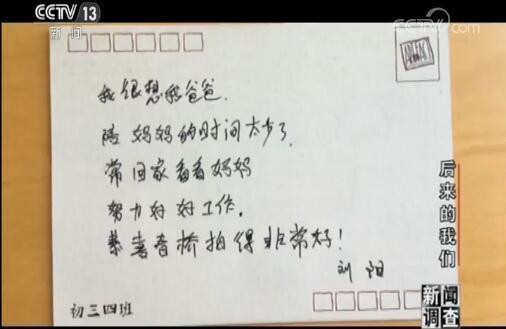 CCTV 13
新闻
CCTV.com
我很想我爸爸.
陪妈妈的时间太少了.
常回家看看妈妈
努力好好工作.
恭喜查桥拍得非常好!
刘阳
初三四班
后来的我们
新闻
调查